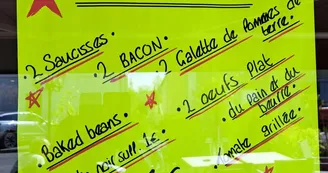 · 2 Saucisses.
· 2 BACON.
· 2 Galette de Pommes de
terre.
· 2 oeufs Plat
· du pain et du
beurre.
· Baked beans.
· tomate grillée.
noir suppl. 1€